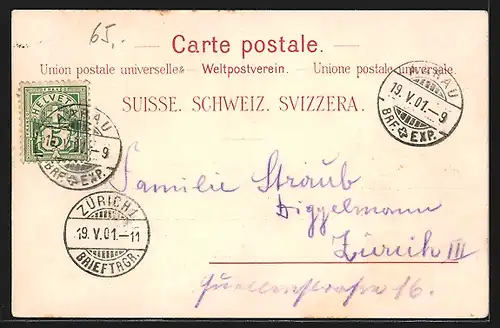 65.-
Carte postale.
Union postale universelle. – Weltpostverein. – Unione postale universale.
SUISSE. SCHWEIZ. SVIZZERA.
HELVETIA
5
AARAU
19.V.01.-9
BRF. EXP.
AARAU
19.V.01.-9
BRF. EXP.
ZÜRICH 1
19.V.01.-11
BRIEFTRGR.
Familie Straub
Diggelmann
Zürich III
Quellenstrasse 16.